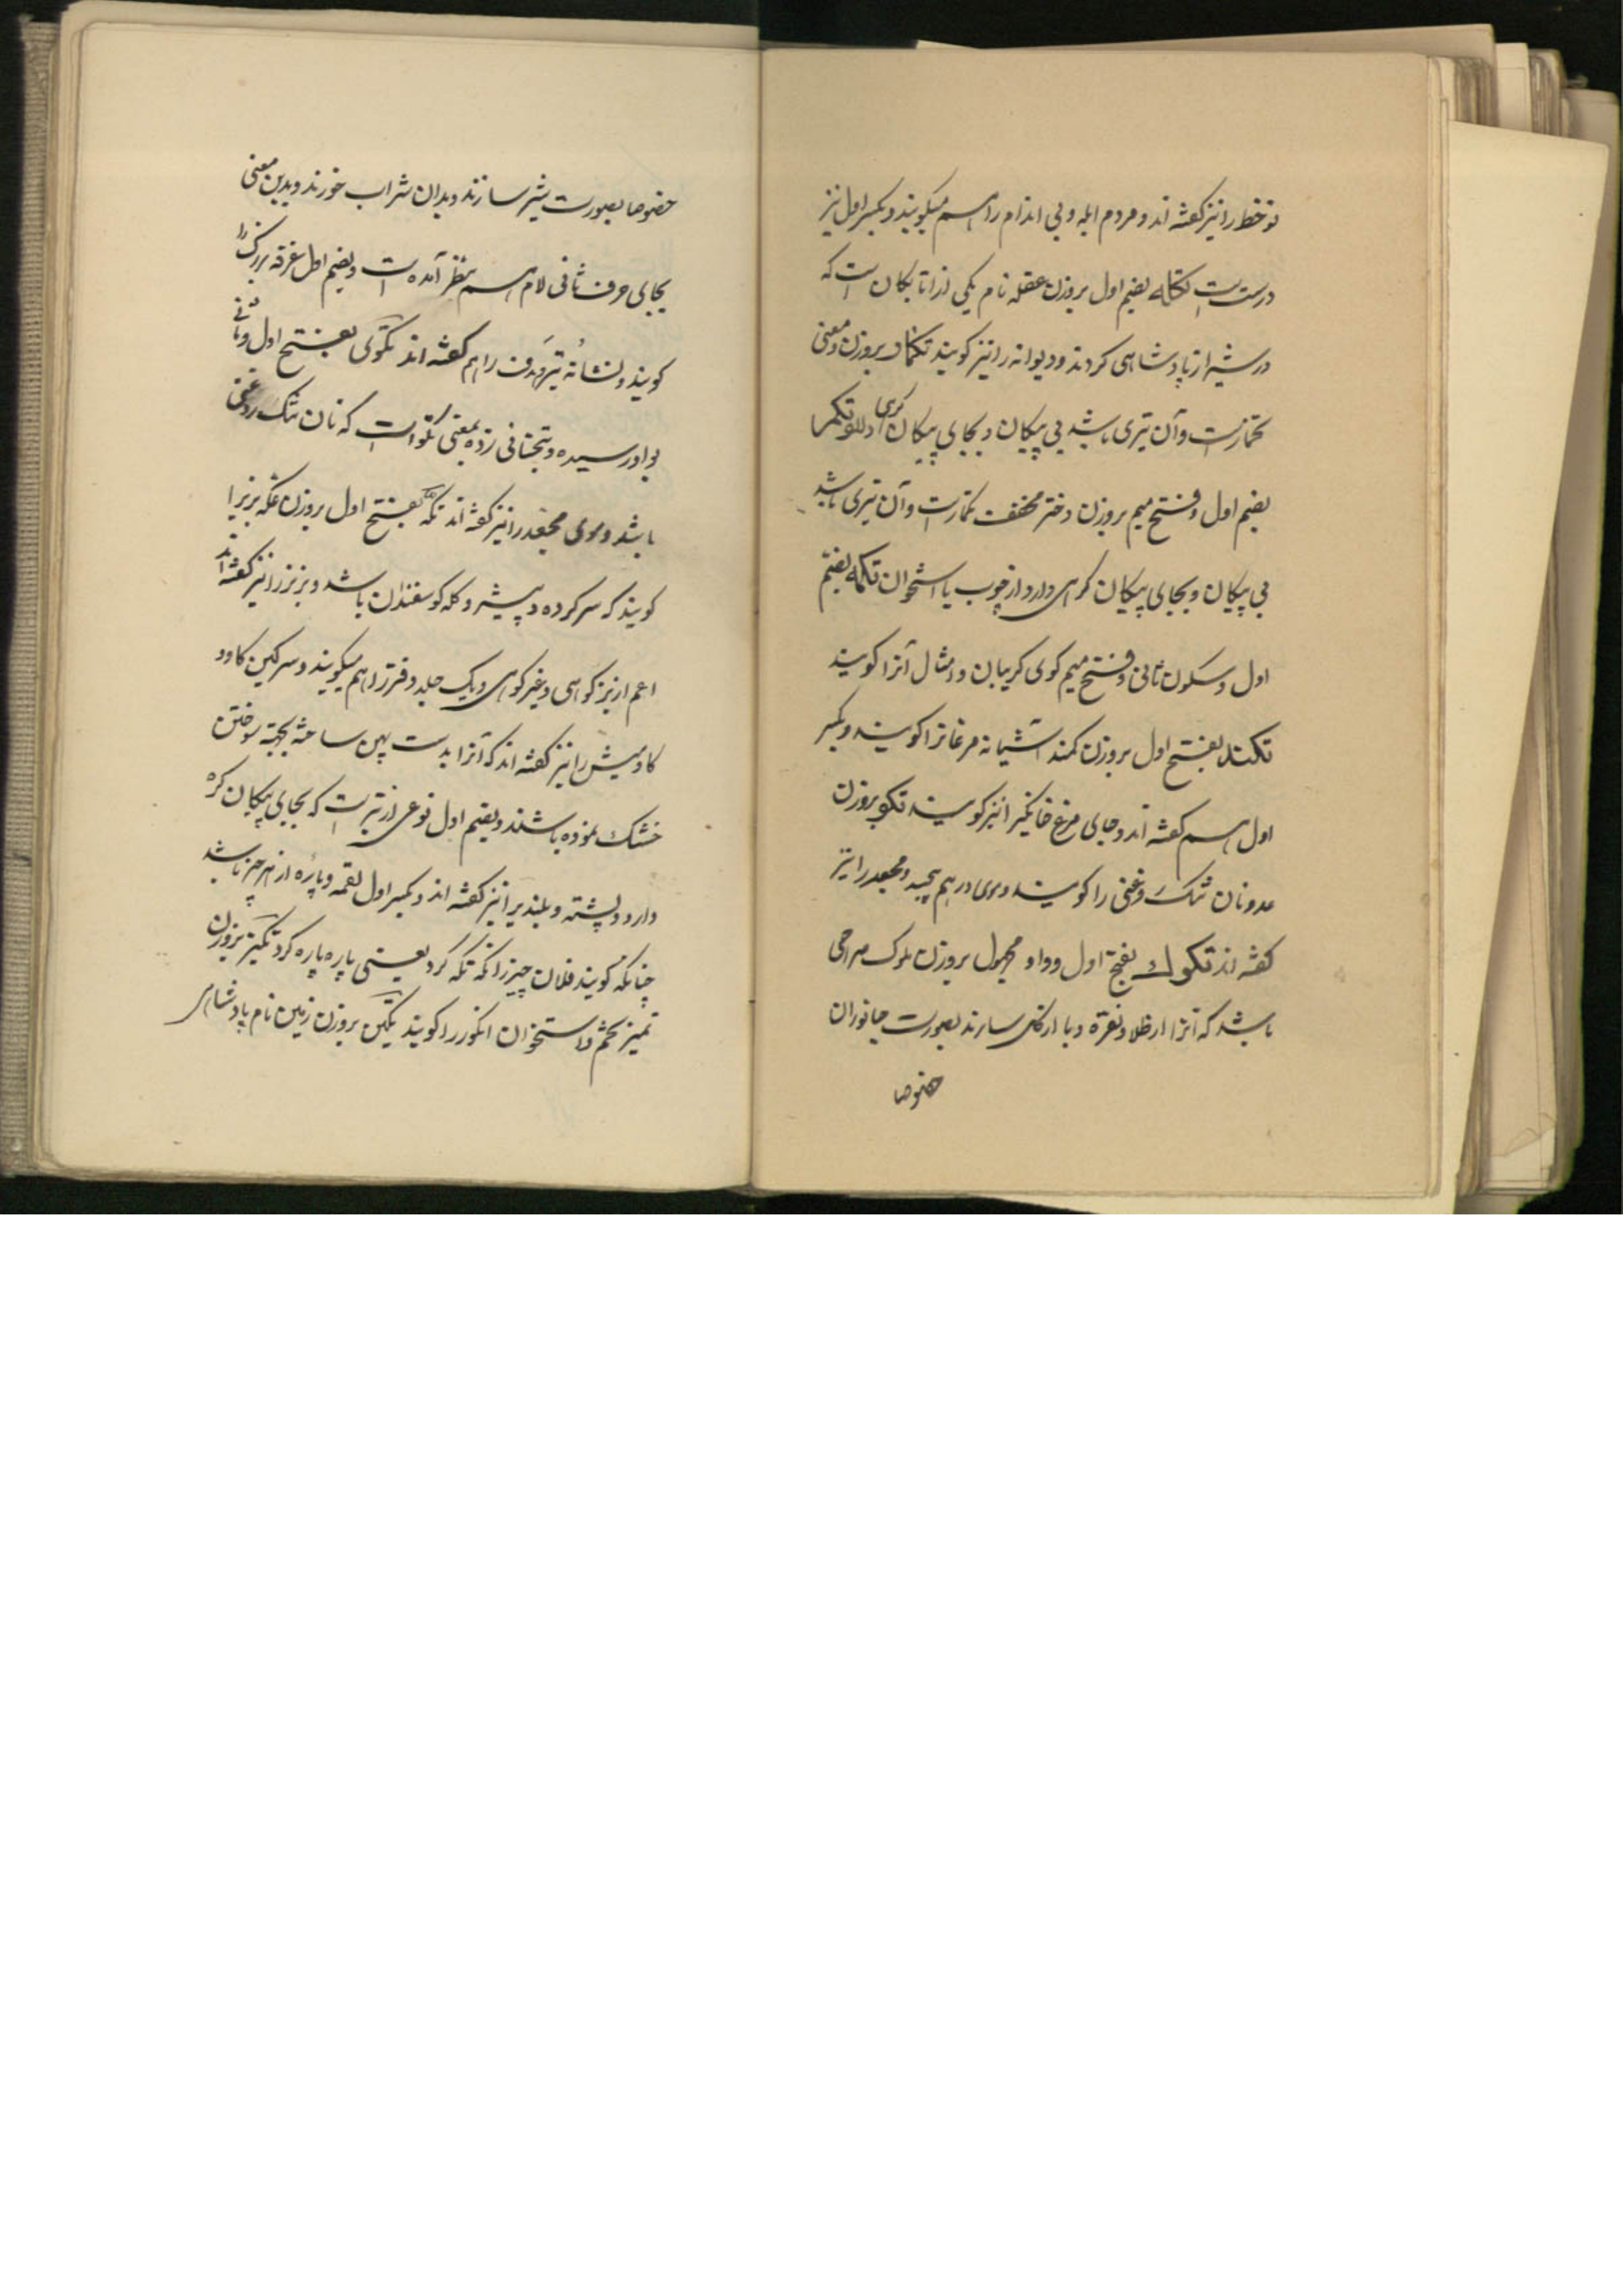 نوخط را نیز کفته اند و مردم ابله و بی اندام را هم میکویند و بکسر اول نیز
درست است تکله بضم اول بروزن عقله نام یکی از اتابکان است که
در شیراز پادشاهی کردند و دیوانه را نیز کویند تکمار بروزن و معنی
تخمارست و آن تیری باشد بی پیکان و بجای پیکان کرهی دارد تکمر
بضم اول و فتح میم بروزن دختر مخفف تکمارست و آن تیری باشد
بی پیکان و بجای پیکان کرهی دارد از چوب یا استخوان تکمه بضم
اول و سکون ثانی و فتح میم کوی کریبان و امثال آنرا کویند
تکند بفتح اول بروزن کمند آشیانه مرغانرا کویند و بکسر
اول هم کفته اند و جای مرغ خانکی را نیز کویند تکو بروزن
عدو نان تنک روغنی را کویند و موی درهم پیچیده و مجعد را نیز
کفته اند تکوک بفتح اول و واو مجهول بروزن ملوک صراحی
باشد که آنرا از طلا و نقره و یا از کل سازند بصورت جانوران
خصوصا
خصوصا بصورت شیر سازند و بدان شراب خورند و بدین معنی
بجای حرف ثانی لام هم بنظر آمده است و بضم اول غرفه بزرک را
کویند و نشانه تیر و هدف را هم کفته اند تکوی بفتح اول و ثانی
بواو رسیده و بتحتانی زده بمعنی تکو است که نان تنک روغنی
باشد و موی مجعد را نیز کفته اند تکه بفتح اول بروزن مکه بزیرا
کویند که سر کرده و پیشرو کله کوسفندان باشد و بز نر را نیز کفته اند
اعم از بز کوهی و غیر کوهی و یک جلد و فتر را هم میکویند و سرکین کاو و
کاومیش را نیز کفته اند که آنرا بدست پهن ساخته بجهة سوختن
خشک نموده باشند و بضم اول نوعی از تیر است که بجای پیکان کره
دارد و پشته و بلندیرا نیز کفته اند و بکسر اول لقمه و پاره از هر چیز باشد
چنانکه کویند فلان چیز را تکه تکه کرد یعنی پاره پاره کرد تکیز بروزن
تمیز تخم و استخوان انکور را کویند تکین بروزن زمین نام پادشاهی